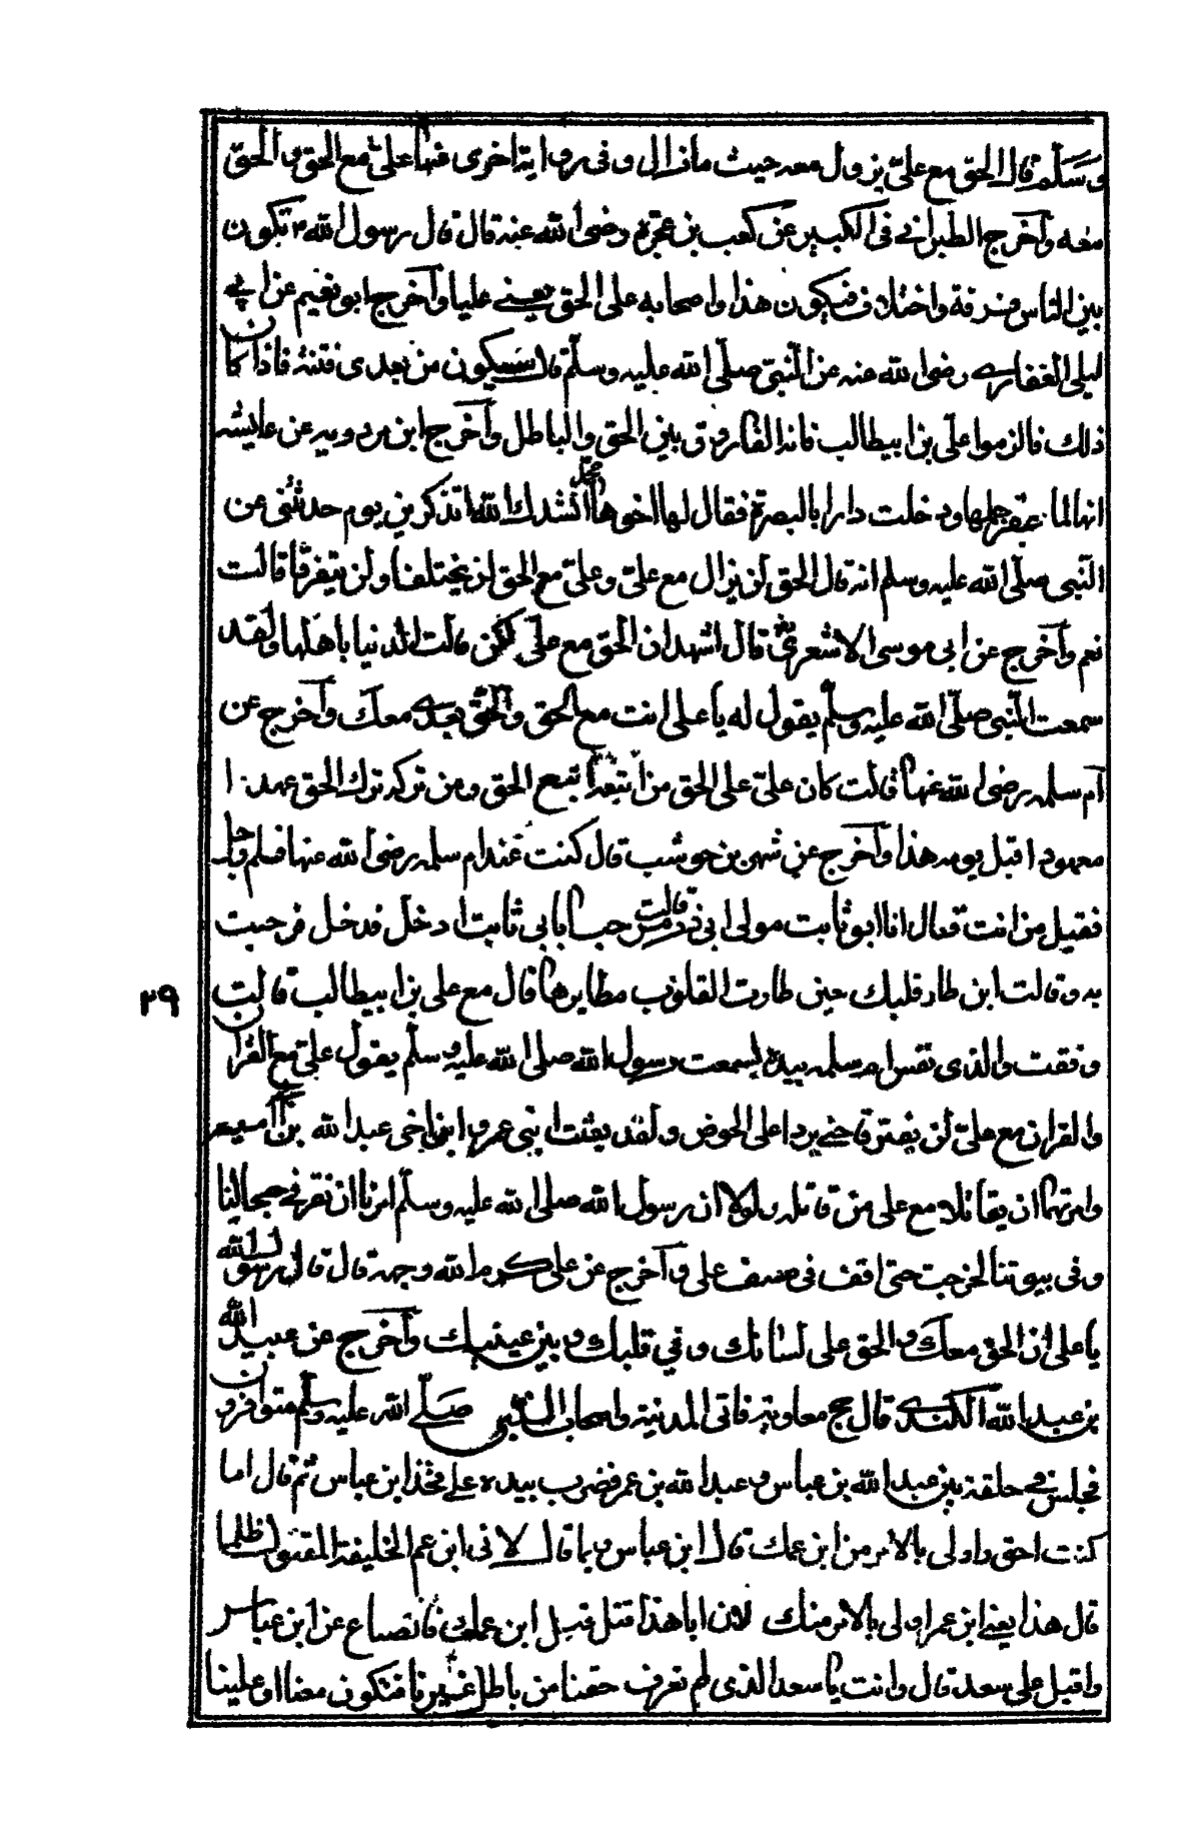 وسلم قال الحق مع علي يزول معه حيث مازال وفي رواية اخرى عنها علي مع الحق والحق
معه وآخرج الطبراني في الكبير عن كعب بن عجرة رضى الله عنه قال قال رسول الله م تكون
بين الناس فرقة واختلاف فيكون هذا واصحابه على الحق يعني عليا وآخرج ابو نعيم عن ابي
ليلى الغفاري رضى الله عنه عن النبي صلى الله عليه وسلم قال سيكون من بعدى فتنة فاذا كان
ذلك فالزموا علي بن ابيطالب فانه الفاروق بين الحق والباطل وآخرج ابن مردويه عن عايشه
انها لما عقر جملها ودخلت دارا بالبصرة فقال لها اخوها محمد انشدك الله اتذكرين يوم حدثتني عن
النبي صلى الله عليه وسلم انه قال الحق لن يزال مع علي وعلي مع الحق لن يختلفا ولن يتفرقا قالت
نعم وآخرج عن ابى موسى الاشعري قال اشهد ان الحق مع علي لكن مالت الدنيا باهلها ولقد
سمعت النبي صلى الله عليه وسلم يقول له يا على انت مع الحق والحق بعدي معك وآخرج عن
ام سلمه رضى الله عنها قالت كان علي على الحق من اتبعه اتبع الحق ومن تركه ترك الحق عهدا
معهودا قبل يومه هذا وآخرج عن شهر بن حوشب قال كنت عند ام سلمه رضى الله عنها فسلم رجل
فقيل من انت فقال انا ابو ثابت مولى ابى ذر قالت مرحبا بابي ثابت ادخل فدخل فرحبت
به وقالت اين طار قلبك حين طارت القلوب مطايرها قال مع على بن ابيطالب قالت
وفقت والذى نفس ام سلمه بيده لسمعت رسول الله صلى الله عليه وسلم يقول علي مع القران
والقران مع علي لن يفترقا حتى يردا على الحوض ولقد بعثت ابنى عمر وابن اخى عبد الله بن ابى اميه
وامرتهما ان يقاتلا مع على من قاتله ولولا ان رسول الله صلى الله عليه وسلم امرنا ان نقر في حجالنا
وفى بيوتنا لخرجت حتى اقف فى صف على وآخرج عن على كرم الله وجهه قال قال رسول الله
يا على ان الحق معك والحق على لسانك وفي قلبك وبين عينيك وآخرج عن عبيد الله
بن عبد الله الكندي قال حج معاوية فاتى المدينة واصحاب النبي صلى الله عليه وسلم متوافرون
فجلس في حلقة بين عبد الله بن عباس وعبد الله بن عمر فضرب بيده على فخذ ابن عباس ثم قال اما
كنت احق واولى بالامر من ابن عمك قال ابن عباس وبما قال لانى ابن عم الخليفة المقتول ظلما
قال هذا يعني ابن عمر اولى بالامر منك لان ابا هذا قتل قبل ابن عمك فانصاع عن ابن عباس
واقبل على سعد قال وانت يا سعد الذى لم تعرف حقنا من باطل غيرنا فتكون معنا او علينا
٢٩